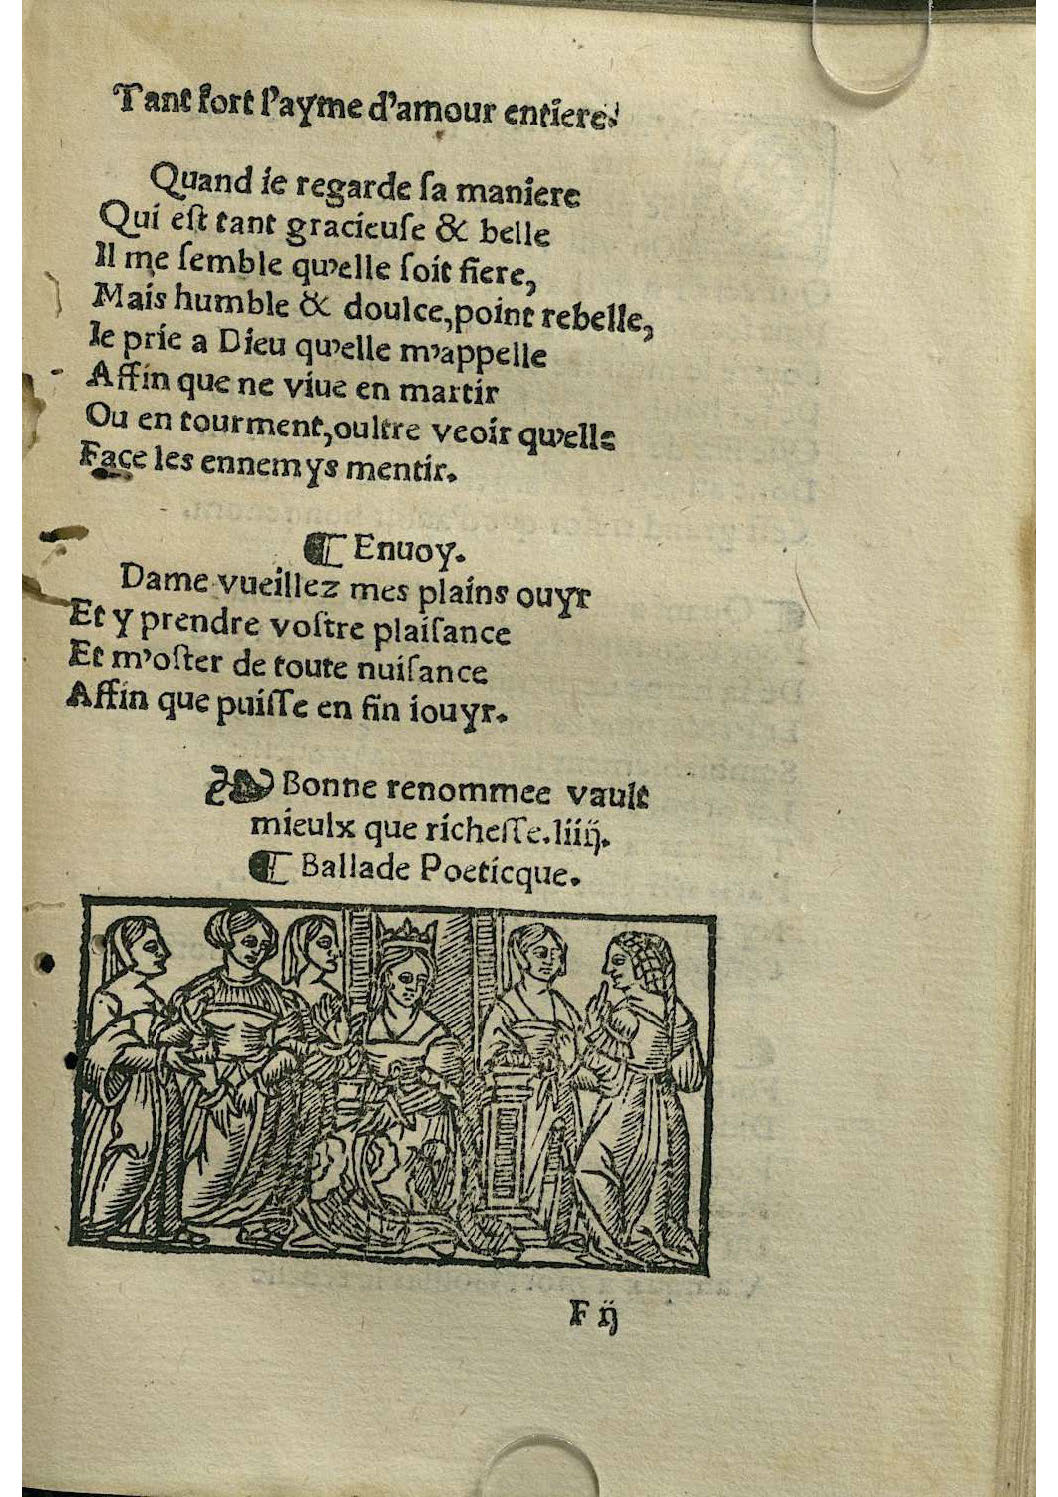 Tant fort l'ayme d'amour entiere.
Quand ie regarde ſa maniere
Qui eſt tant gracieuſe & belle
Il me ſemble qu'elle ſoit fiere,
Mais humble & doulce, point rebelle,
Ie prie a Dieu qu'elle m'appelle
Affin que ne viue en martir
Ou en tourment, oultre veoir qu'elle
Face les ennemys mentir.
¶ Enuoy.
Dame vueillez mes plains ouyr
Et y prendre voſtre plaiſance
Et m'oſter de toute nuiſance
Affin que puiſſe en fin iouyr.
❧ Bonne renommee vault
mieulx que richeſſe. liiij.
¶ Ballade Poeticque.
F ij